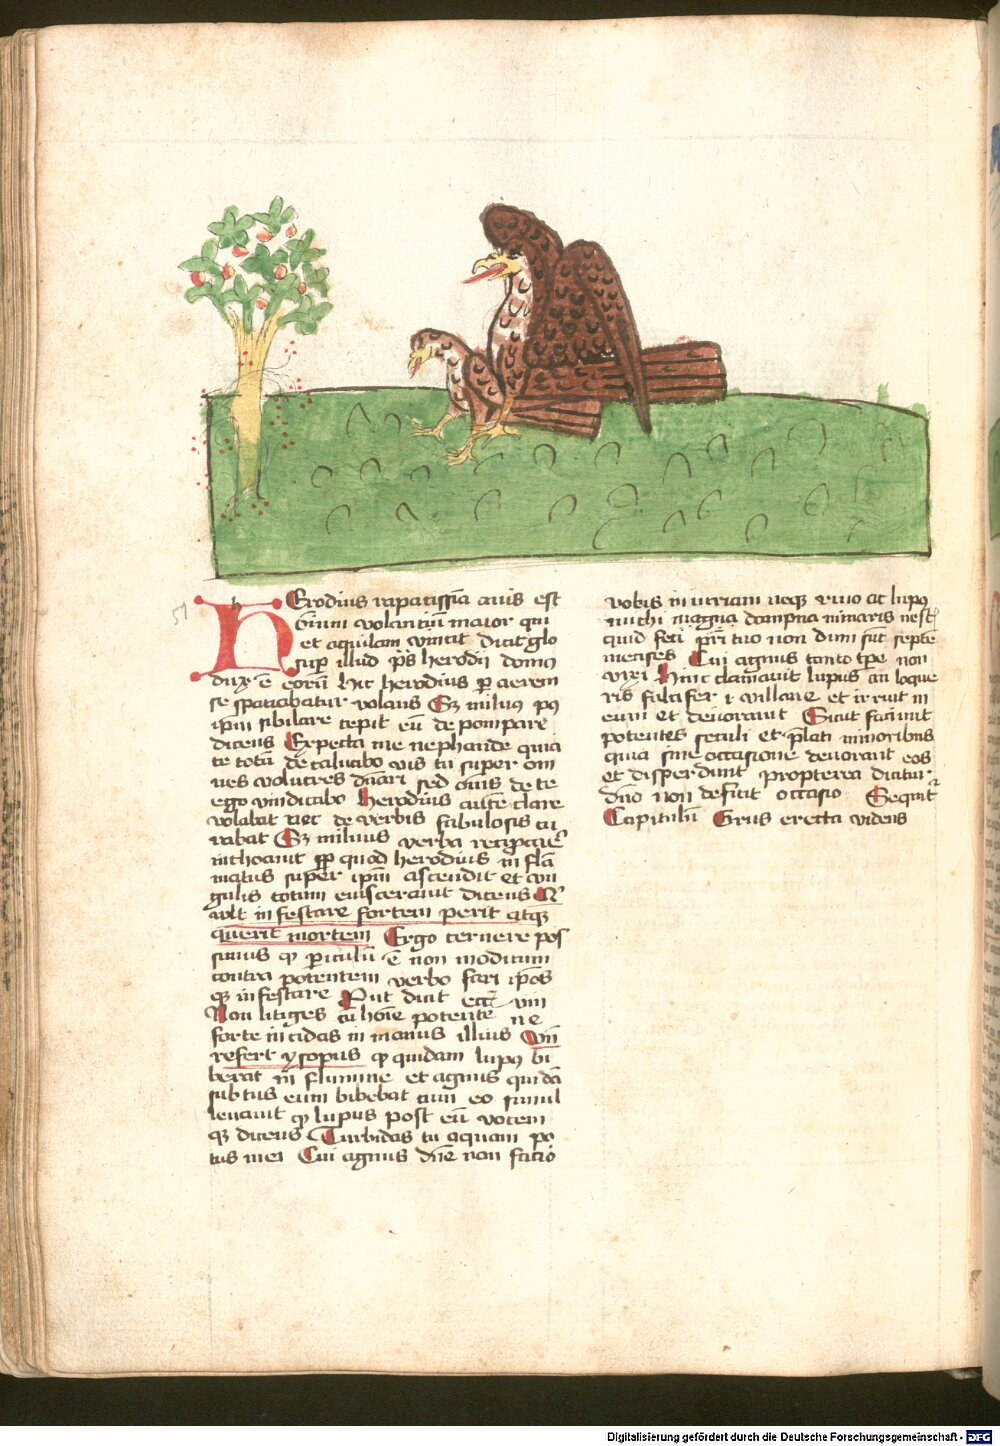 51
h
HErodius rapatissīa auis est
Oīnium volantiū maior qui
et aquilam vincit dicit glo
sup illud ps herodii domus
dux ē eorū Hic herodius p aerem
se spatiabatur volans Sz miluus
ipm sibilare cepit eū de
dicens Expecta me nephande quia
te totū vis tu super om
nes volucres dnari sed omis de te
ego vindicabo Herodius aute clare
volabat nec de verbis fabulosis cu
rabat Sz miluus verba
pp quod herodius in flā
matus super ipm ascendit et cū
gulis totum euiscerauit dicens
vult infestare fortem perit atqz
querit mortem Ergo cernere pos
sumus qp piculū ē non modicum
contra potentem verbo fari ipos
qz infestare Put dicit eccī viii
Non litiges cū hoīe potente ne
forte incidas in manus illius Vn
refert ysopus qp quidam lupus bi
berat in flumine et agnus quidā
subtus eum bibebat cum eo simul
leuauit qp lupus post eū vocem
qz dicens Turbidas tu aquam po
tus mei Cui agnus dne non facio
vobis iniuriam neqz riuo at lupus
michi magna dampna minaris
quid feci pri tuo non dum sūt septē
menses Cui agnus tanto tpe non
vixi Hinc clamauit lupus an loque
ris furcifer et irruit in
eum et deuorauit Sicut faciunt
potentes seculi et plati minoribus
quia sine occasione deuorant eos
et disperdunt Propterea dicitur
dno non deficit occasio Sequitr
Capitulū Grus erecta videns
Digitalisierung gefördert durch die Deutsche Forschungsgemeinschaft - DFG